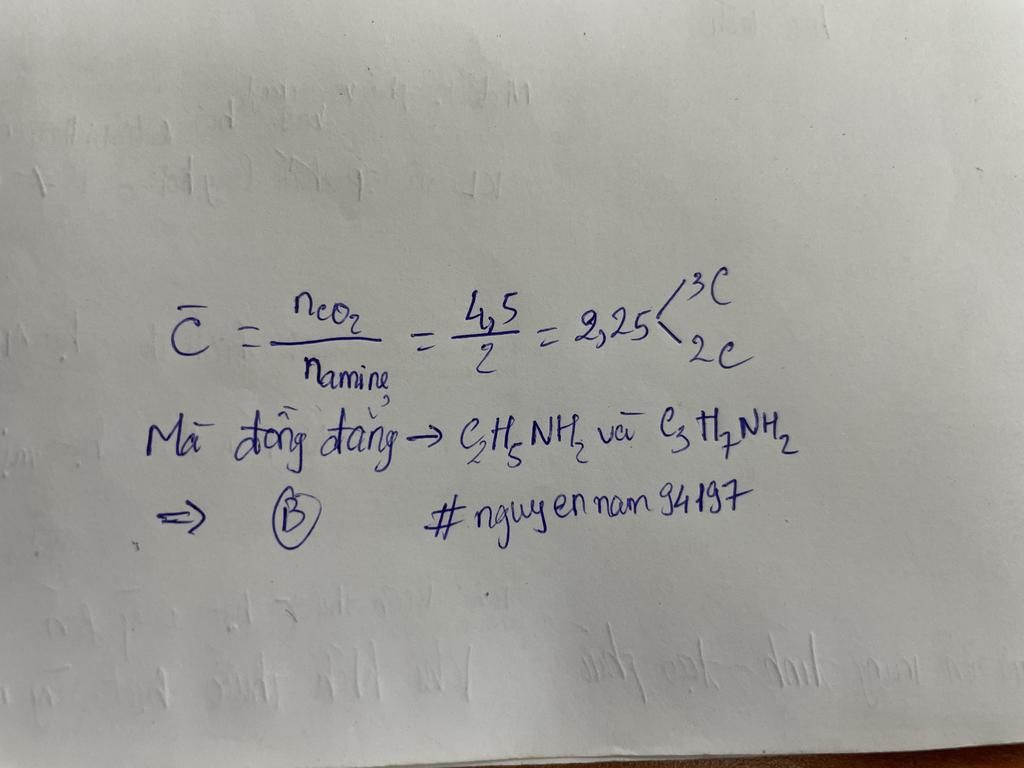 C̄ = nCO₂ / namine = 4,5 / 2 = 2,25 < 3C 2C
Mà đồng đẳng → C₂H₅NH₂ và C₃H₇NH₂
⇒ Ⓑ #nguyennam94197